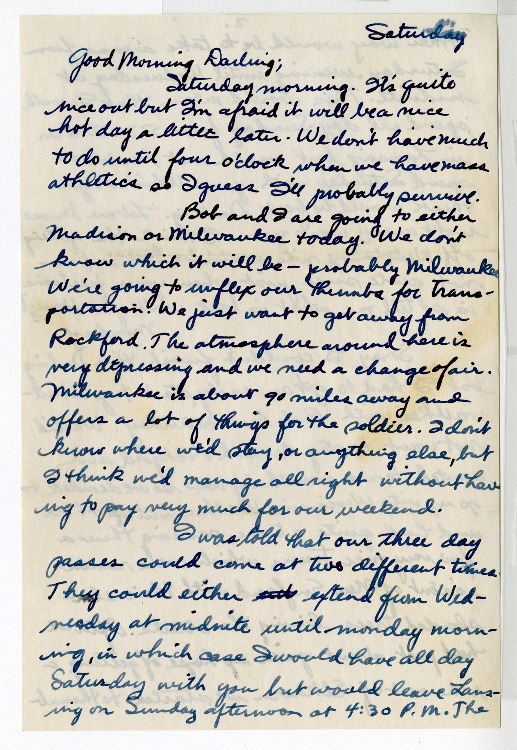 Saturday
Good Morning Darling;
Saturday morning. It's quite
nice out but I'm afraid it will be a nice
hot day a little later. We don't have much
to do until four o'clock when we have mass
athletics so I guess I'll probably survive.
Bob and I are going to either
Madison or Milwaukee today. We don't
know which it will be – probably Milwaukee
We're going to unflex our thumbs for trans-
portation. We just want to get away from
Rockford. The atmosphere around here is
very depressing and we need a change of air.
Milwaukee is about 90 miles away and
offers a lot of things for the soldier. I don't
know where we'd stay, or anything else, but
I think we'd manage all right without hav-
ing to pay very much for our weekend.
I was told that our three day
passes could come at two different times.
They could either extend from Wed-
nesday at midnite until monday morn-
ing, in which case I would have all day
Saturday with you but would leave Lans-
ing on Sunday afternoon at 4:30 P.M. The